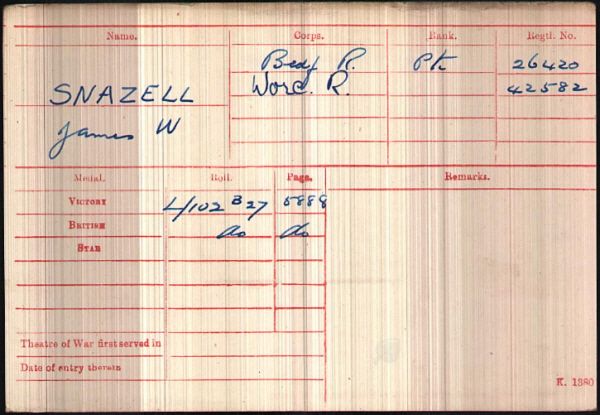 Name. Corps. Rank. Regtl. No.
Bedf R. Pte 26420
SNAZELL Worc. R. 42582
James W
Medal. Roll. Page. Remarks.
VICTORY L/102 B27 5888
BRITISH do do
STAR
Theatre of War first served in
Date of entry therein
K. 1380